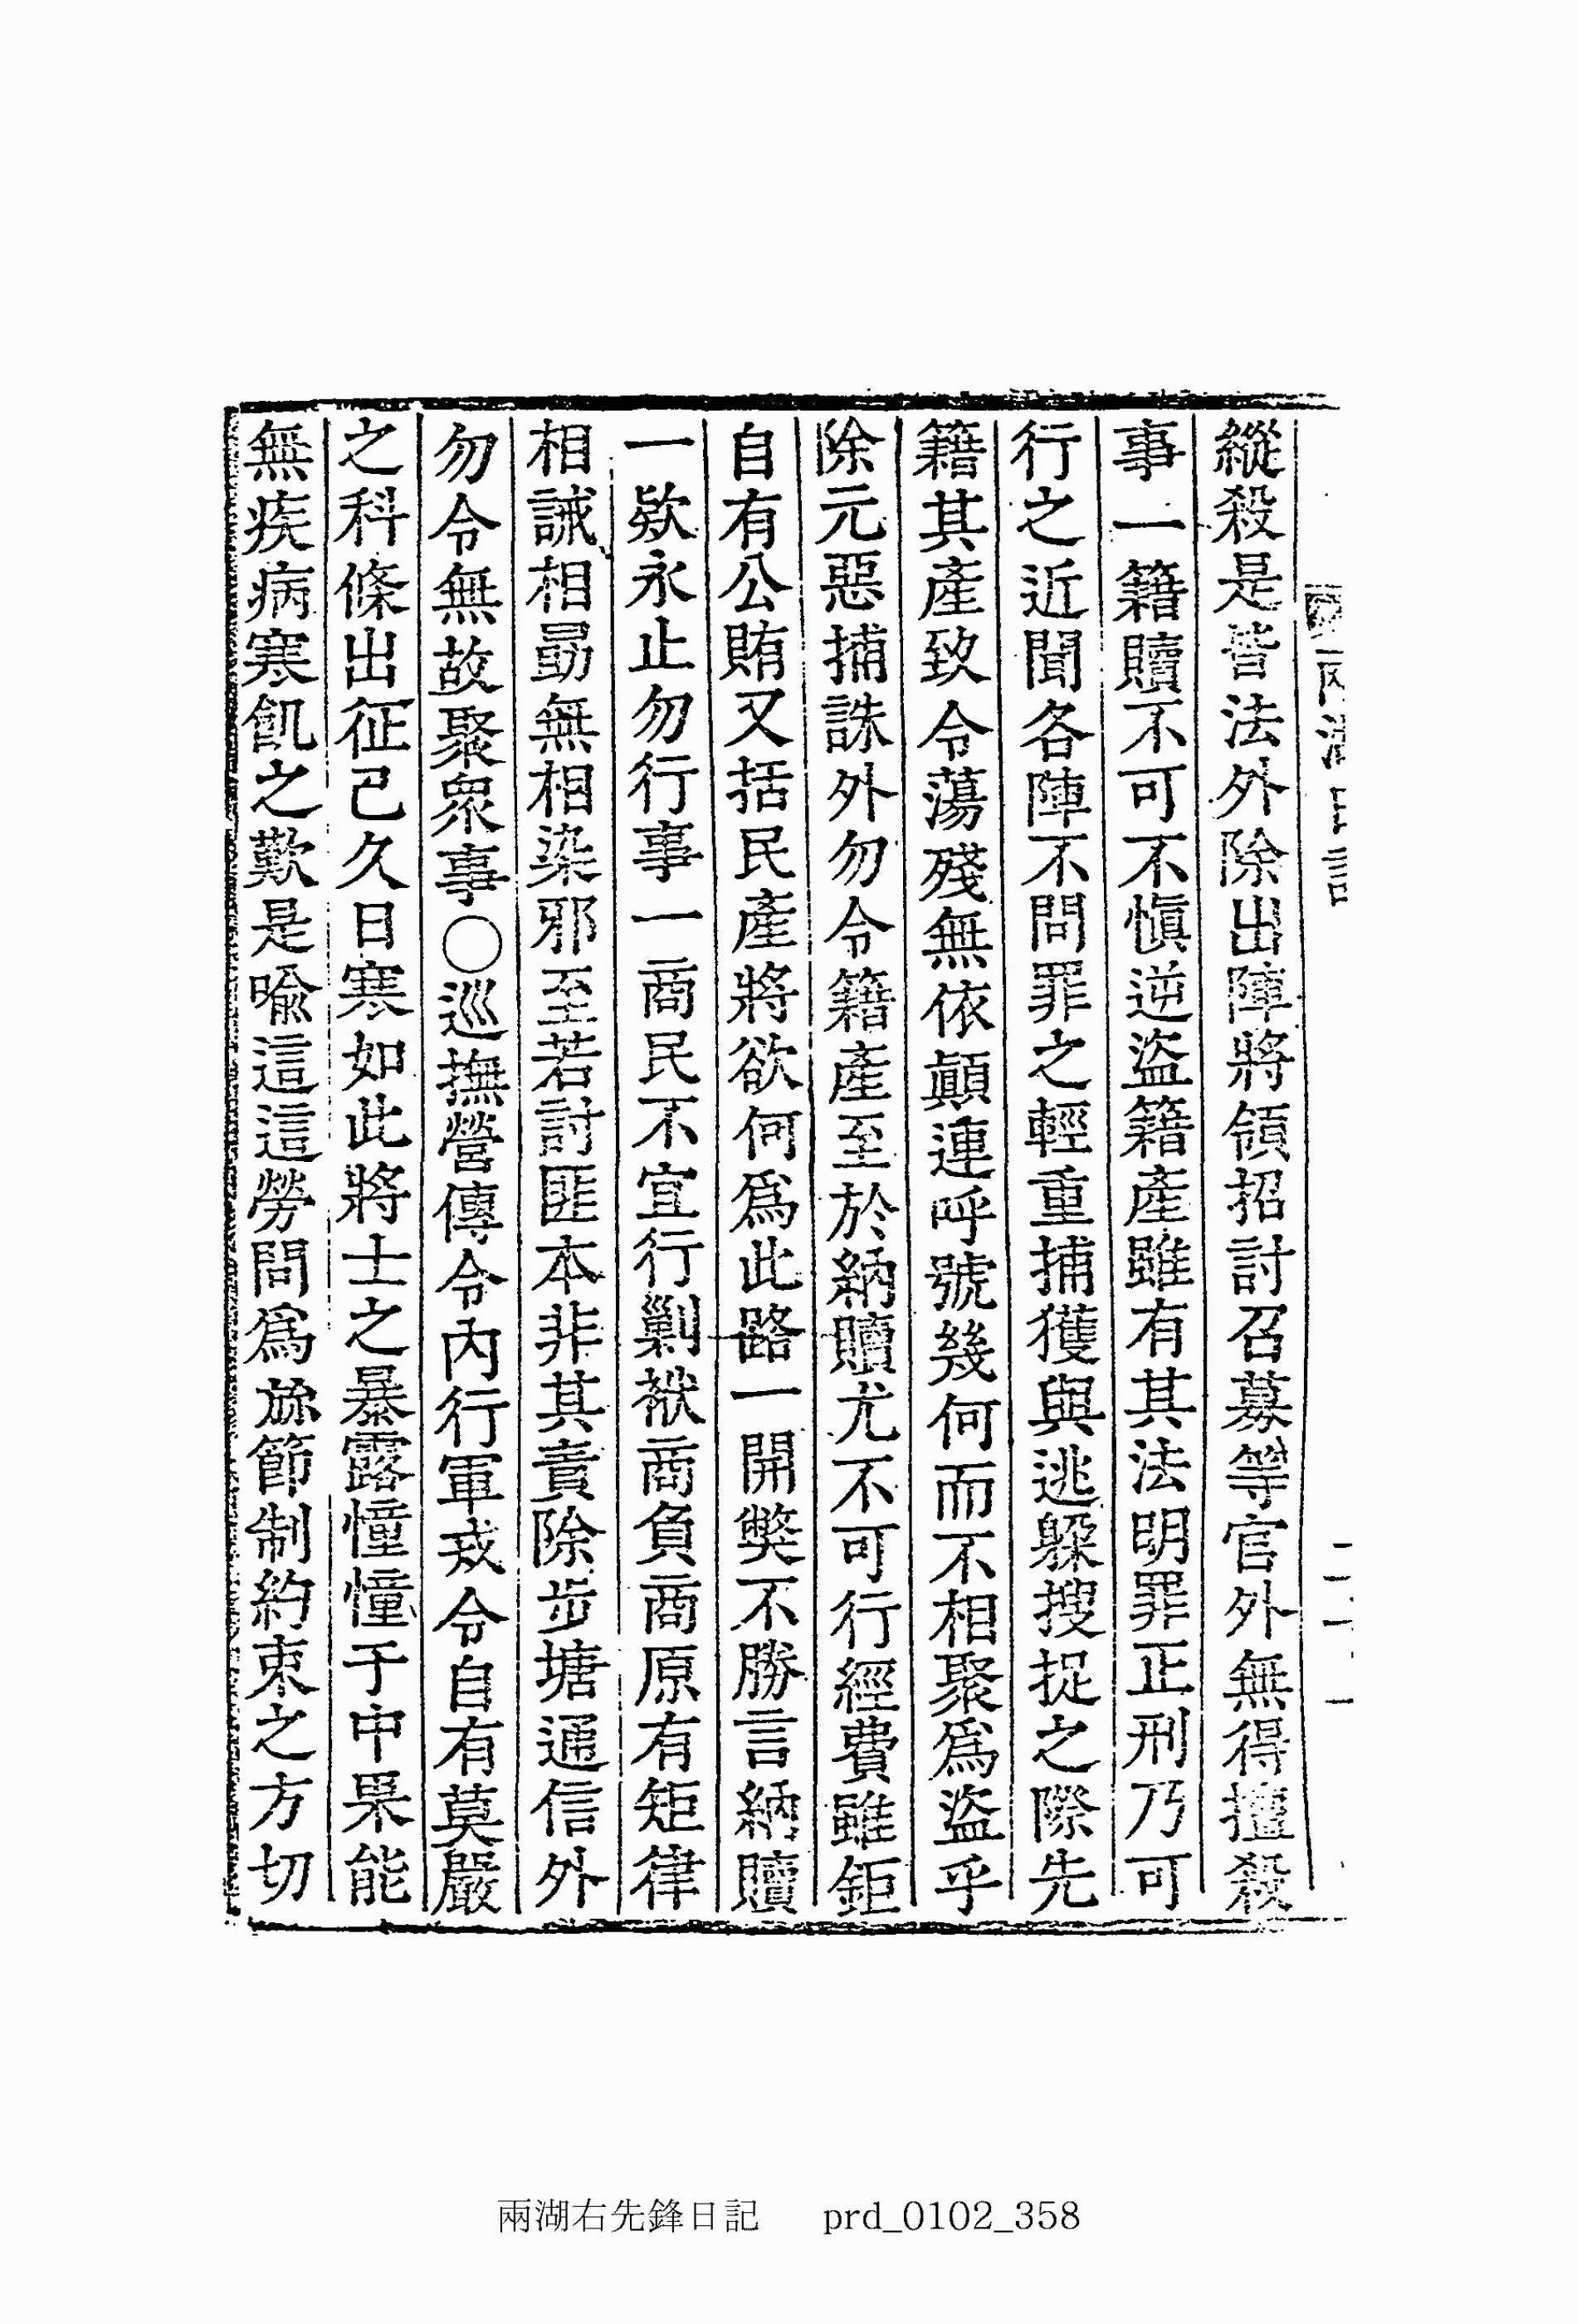 縱殺是皆法外除出陣將領招討召募等官外無得擅殺
事一籍贖不可不愼逆盜籍產雖有其法明罪正刑乃可
行之近聞各陣不問罪之輕重捕獲與逃躱搜捉之際先
籍其產致令蕩殘無依顚連呼號幾何而不相聚爲盜乎
除元惡捕誅外勿令籍產至於納贖尤不可行經費雖鉅
自有公賄又括民產將欲何爲此路一開獘不勝言納贖
一欵永止勿行事一商民不宜行剿袱商負商原有矩律
相誡相勗無相染邪至若討匪本非其責除步塘通信外
勿令無故聚衆事○巡撫營傳令內行軍戎令自有莫嚴
之科條出征已久日寒如此將士之暴露憧憧于中果能
無疾病寒飢之歎是喩這這勞問爲旀節制約束之方切
兩湖右先鋒日記 prd_0102_358